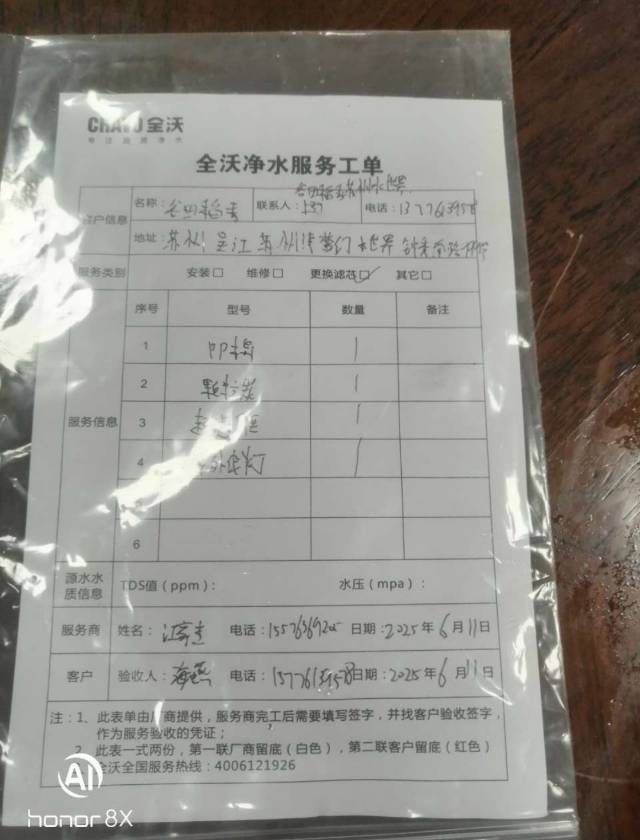 CHAVO 全沃
专注品质净水
全沃净水服务工单
客户信息
名称：谷田稻香 联系人： 电话：
地址：苏州 吴江
服务类别 安装□ 维修□ 更换滤芯☑ 其它□
服务信息
序号 型号 数量 备注
1 PP棉 1
2 颗粒炭 1
3 1
4 紫外线灯 1
6
源水水质信息 TDS值（ppm）： 水压（mpa）：
服务商 姓名： 电话： 日期：2025年6月11日
客户 验收人：海燕 电话： 日期：2025年6月11日
注：1、此表单由厂商提供，服务商完工后需要填写签字，并找客户验收签字，
作为服务验收的凭证；
2、此表一式两份，第一联厂商留底（白色），第二联客户留底（红色）
全沃全国服务热线：4006121926
AI
honor 8X